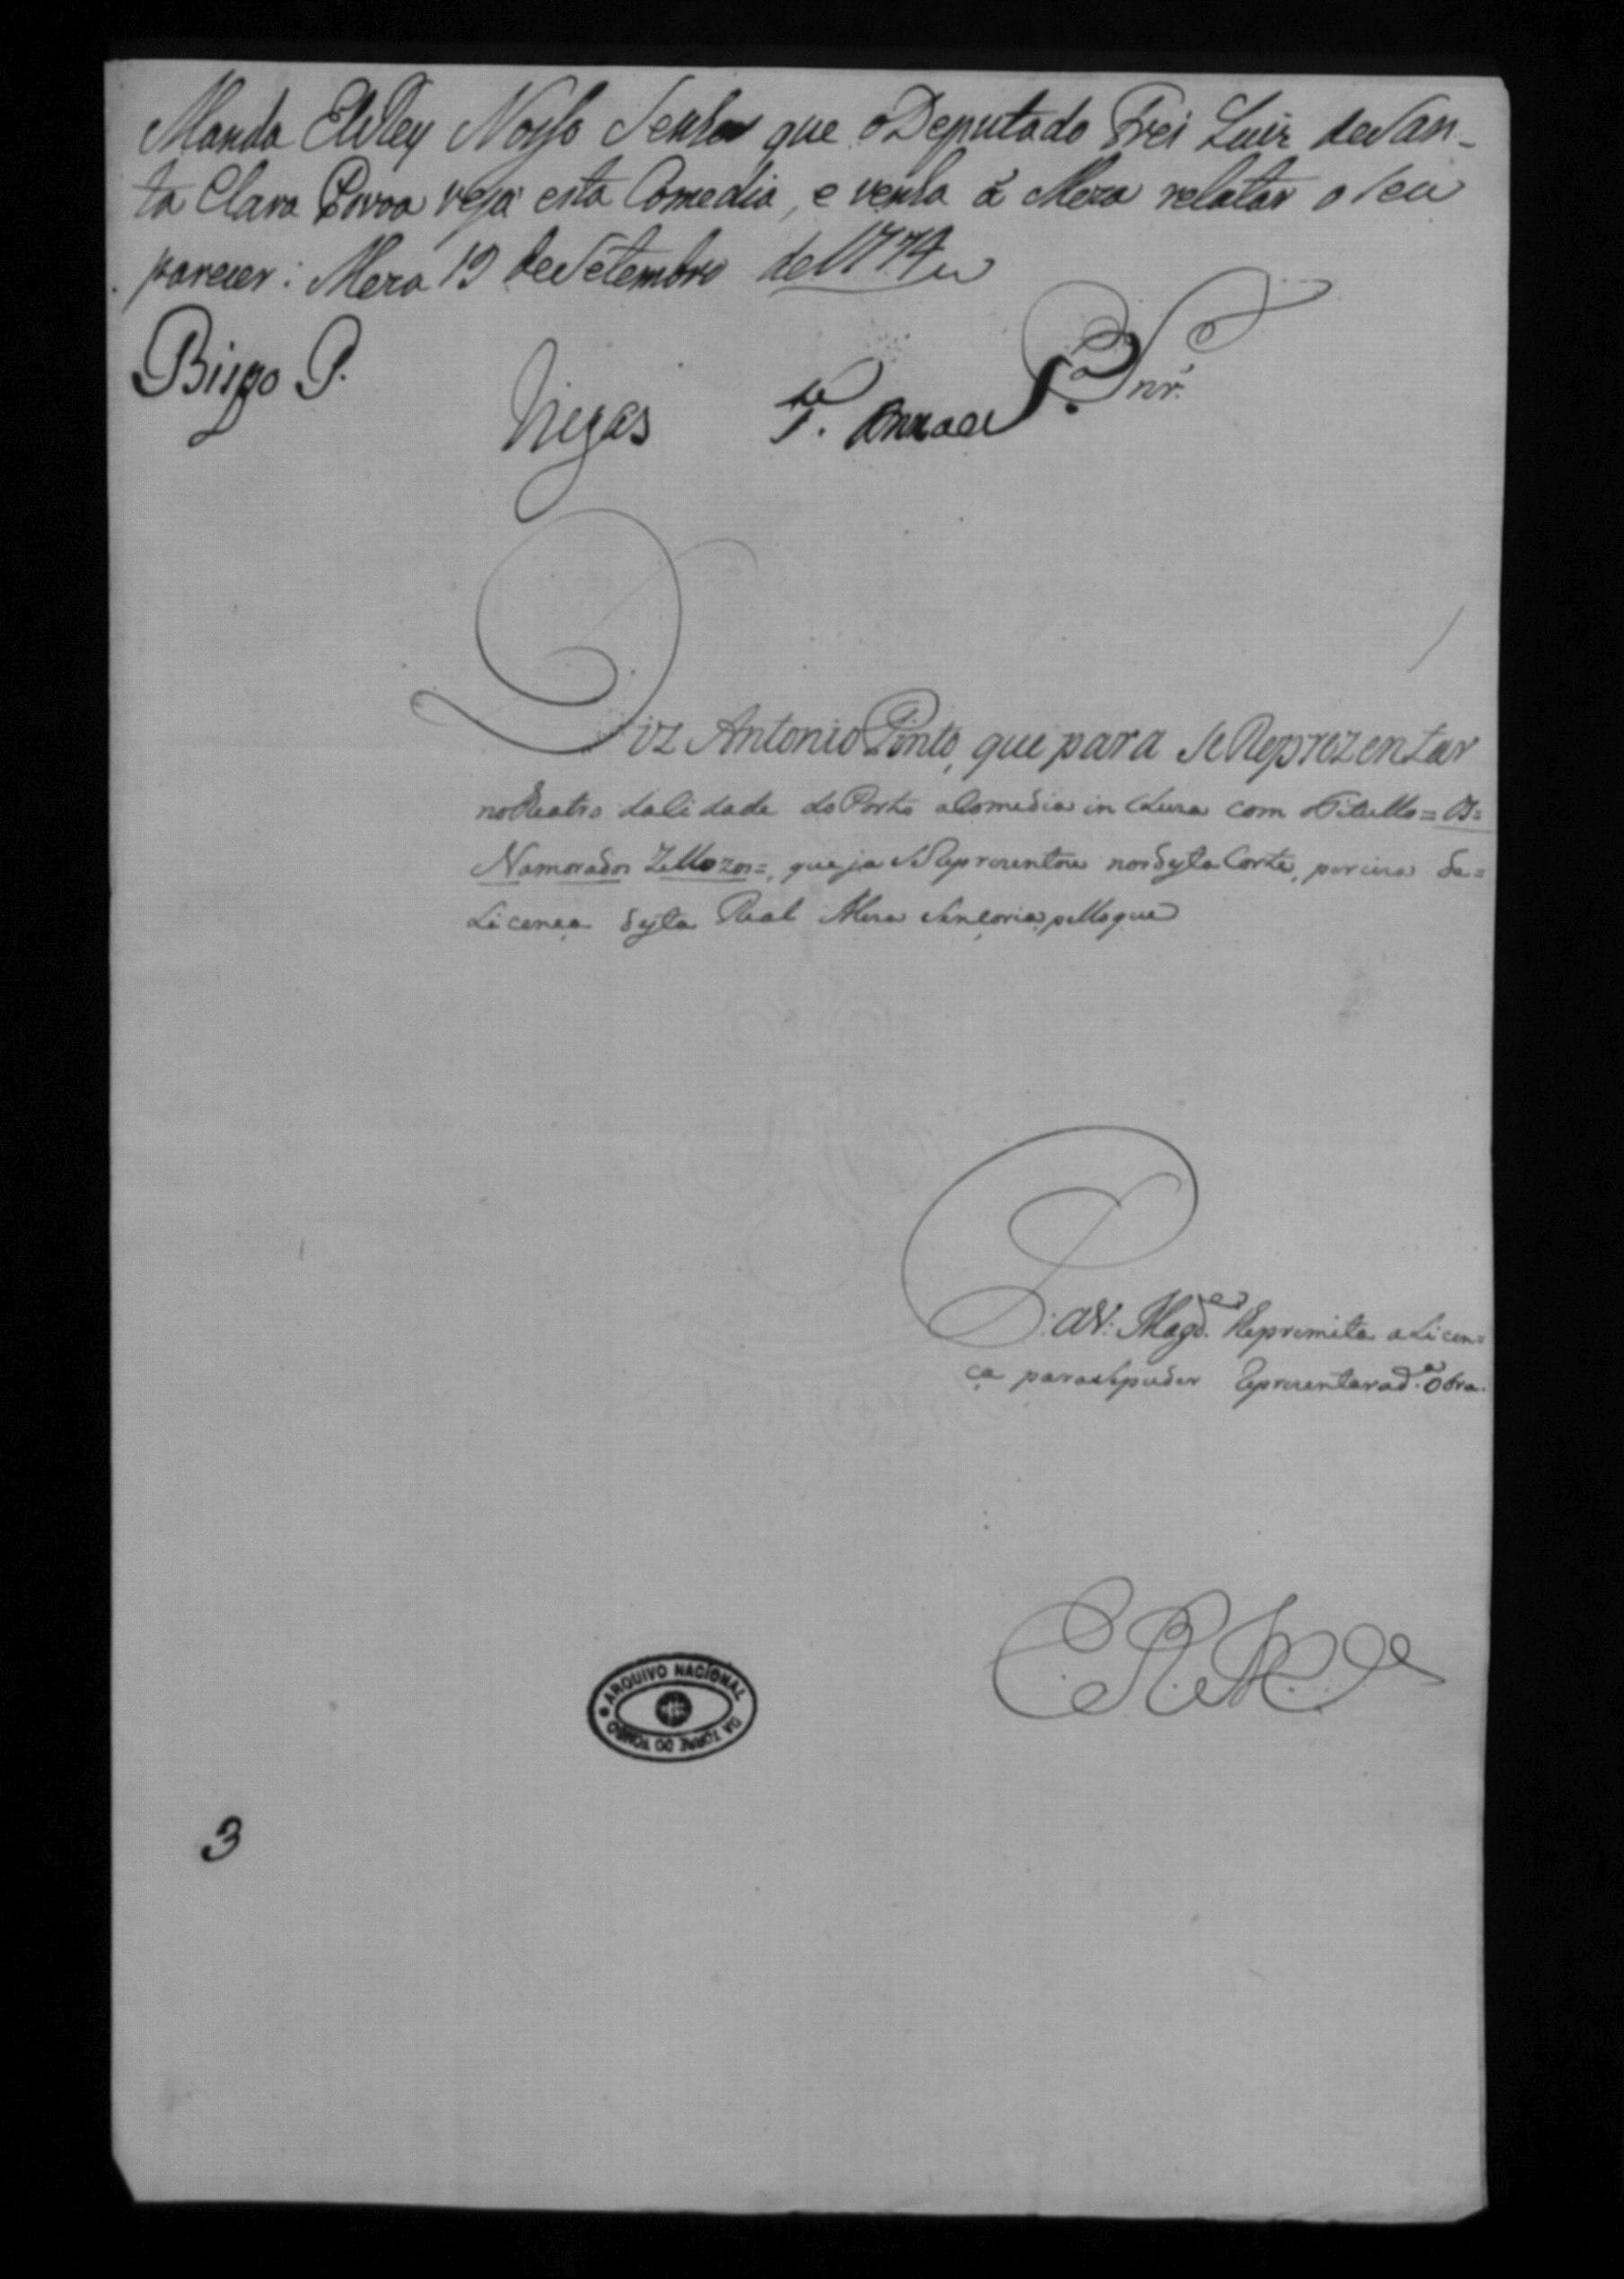 Manda ElRey Nosso Senhor que o Deputado Frei Luiz de San-
ta Clara Povoa veja esta Comedia, e venha á Meza relatar o seu
parecer: Meza 19 de Setembro de 1774
Bispo P.
Viegas
S.
Snr.
Diz Antonio Pinto, que para se Reprezentar
no Theatro da Cidade do Porto a Comedia incluza com o Titullo = Os =
Namorados Zellozos =, que ja se Reprezentou nesta Corte, perciza da =
Licença desta Real Meza Sençoria, pello que
P. a V. Magd.e
a Licen=
ça para se puder Reprezentar a d.a Obra.
E. R. M.ce
ARQUIVO NACIONAL
DA TORRE DO TOMBO
3